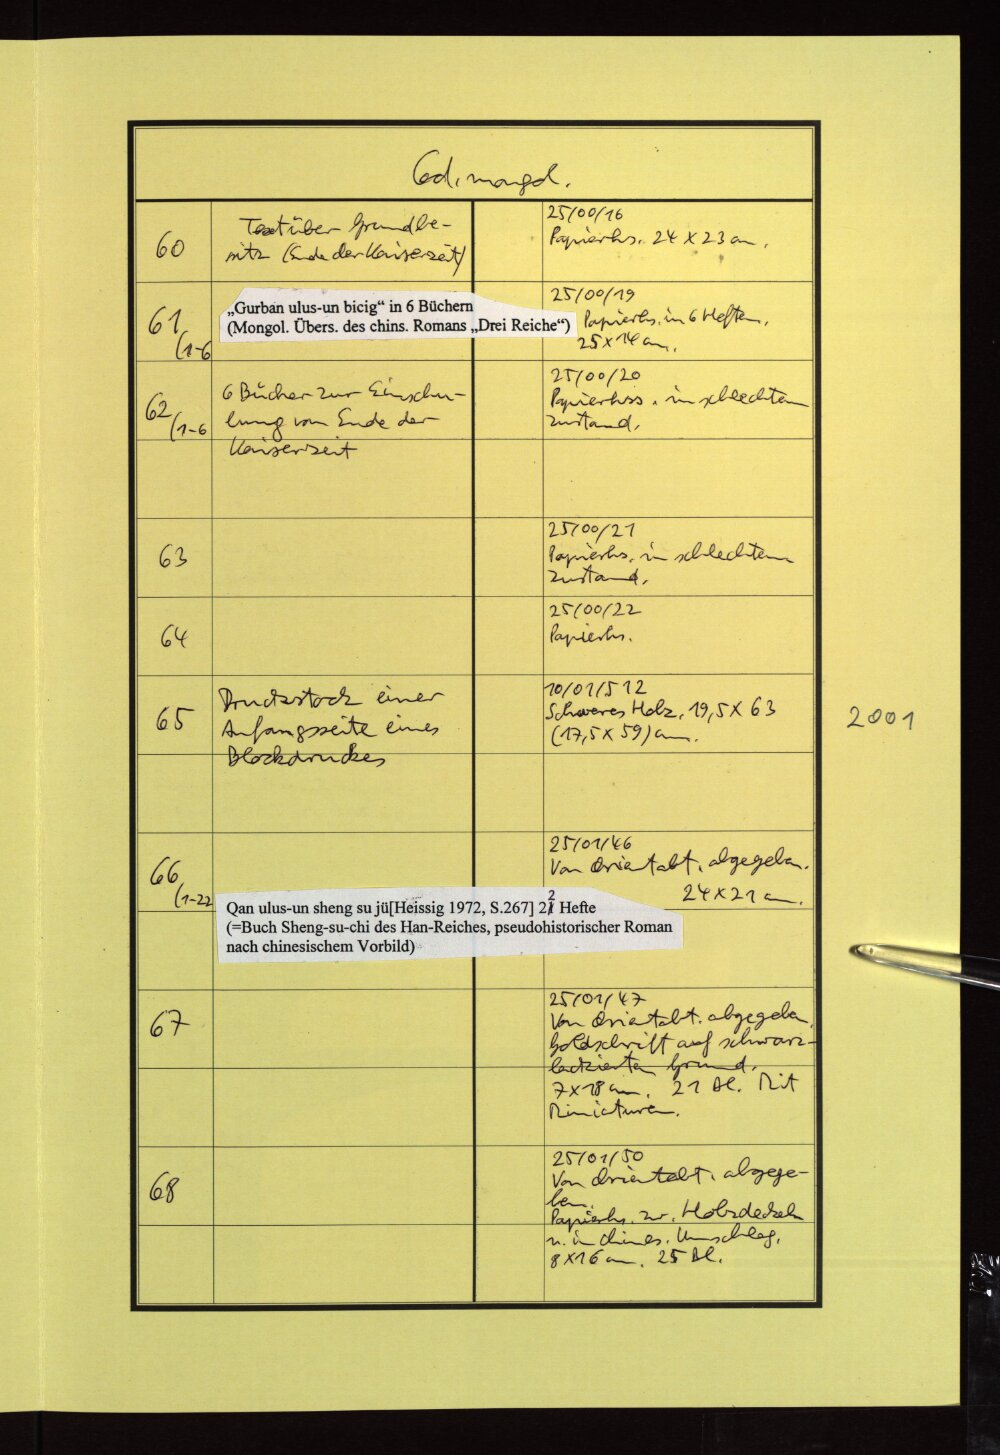 Cod. mongol.
60
Text über Grundbe-
sitz (Ende der Kaiserzeit)
25/00/16
Papierhs. 24 x 23 cm.
61
(1-6
„Gurban ulus-un bicig“ in 6 Büchern
(Mongol. Übers. des chins. Romans „Drei Reiche“)
25/00/19
Papierhs. in 6 Heften.
25 x 14 cm.
62
(1-6
6 Bücher zur Einschu-
lung vom Ende der
Kaiserzeit
25/00/20
Papierhss. in schlechtem
Zustand.
63
25/00/21
Papierhs. in schlechtem
Zustand.
64
25/00/22
Papierhs.
65
Druckstock einer
Anfangsseite eines
Blockdruckes
10/01/512
Schweres Holz. 19,5 x 63
(17,5 x 59) cm.
2001
66
(1-22
Qan ulus-un sheng su jü[Heissig 1972, S.267] 22 Hefte
(=Buch Sheng-su-chi des Han-Reiches, pseudohistorischer Roman
nach chinesischem Vorbild)
25/01/46
Von Orientabt. abgegeben.
24 x 21 cm.
67
25/01/47
Von Orientabt. abgegeben.
Goldschrift auf schwarz-
lackierten Grund.
7 x 18 cm. 21 Bl. Mit
Miniaturen.
68
25/01/50
Von Orientabt. abgege-
ben.
Papierhs. zw. Holzdeckeln
u. in chines. Umschlag.
8 x 16 cm. 25 Bl.